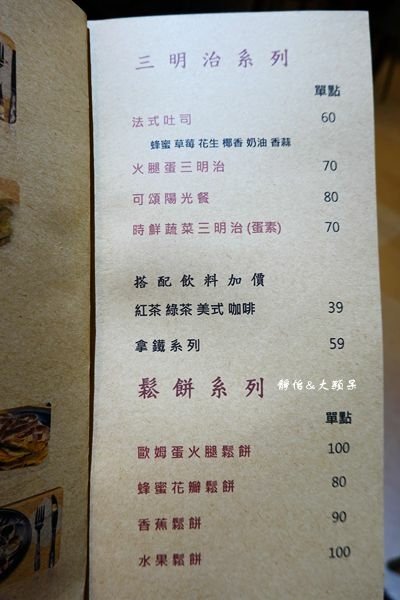 三明治系列
單點
法式吐司 60
蜂蜜 草莓 花生 椰香 奶油 香蒜
火腿蛋三明治 70
可頌陽光餐 80
時鮮蔬菜三明治(蛋素) 70
搭配飲料加價
紅茶 綠茶 美式咖啡 39
拿鐵系列 59
靜怡&大顆呆
鬆餅系列
單點
歐姆蛋火腿鬆餅 100
蜂蜜花瓣鬆餅 80
香蕉鬆餅 90
水果鬆餅 100